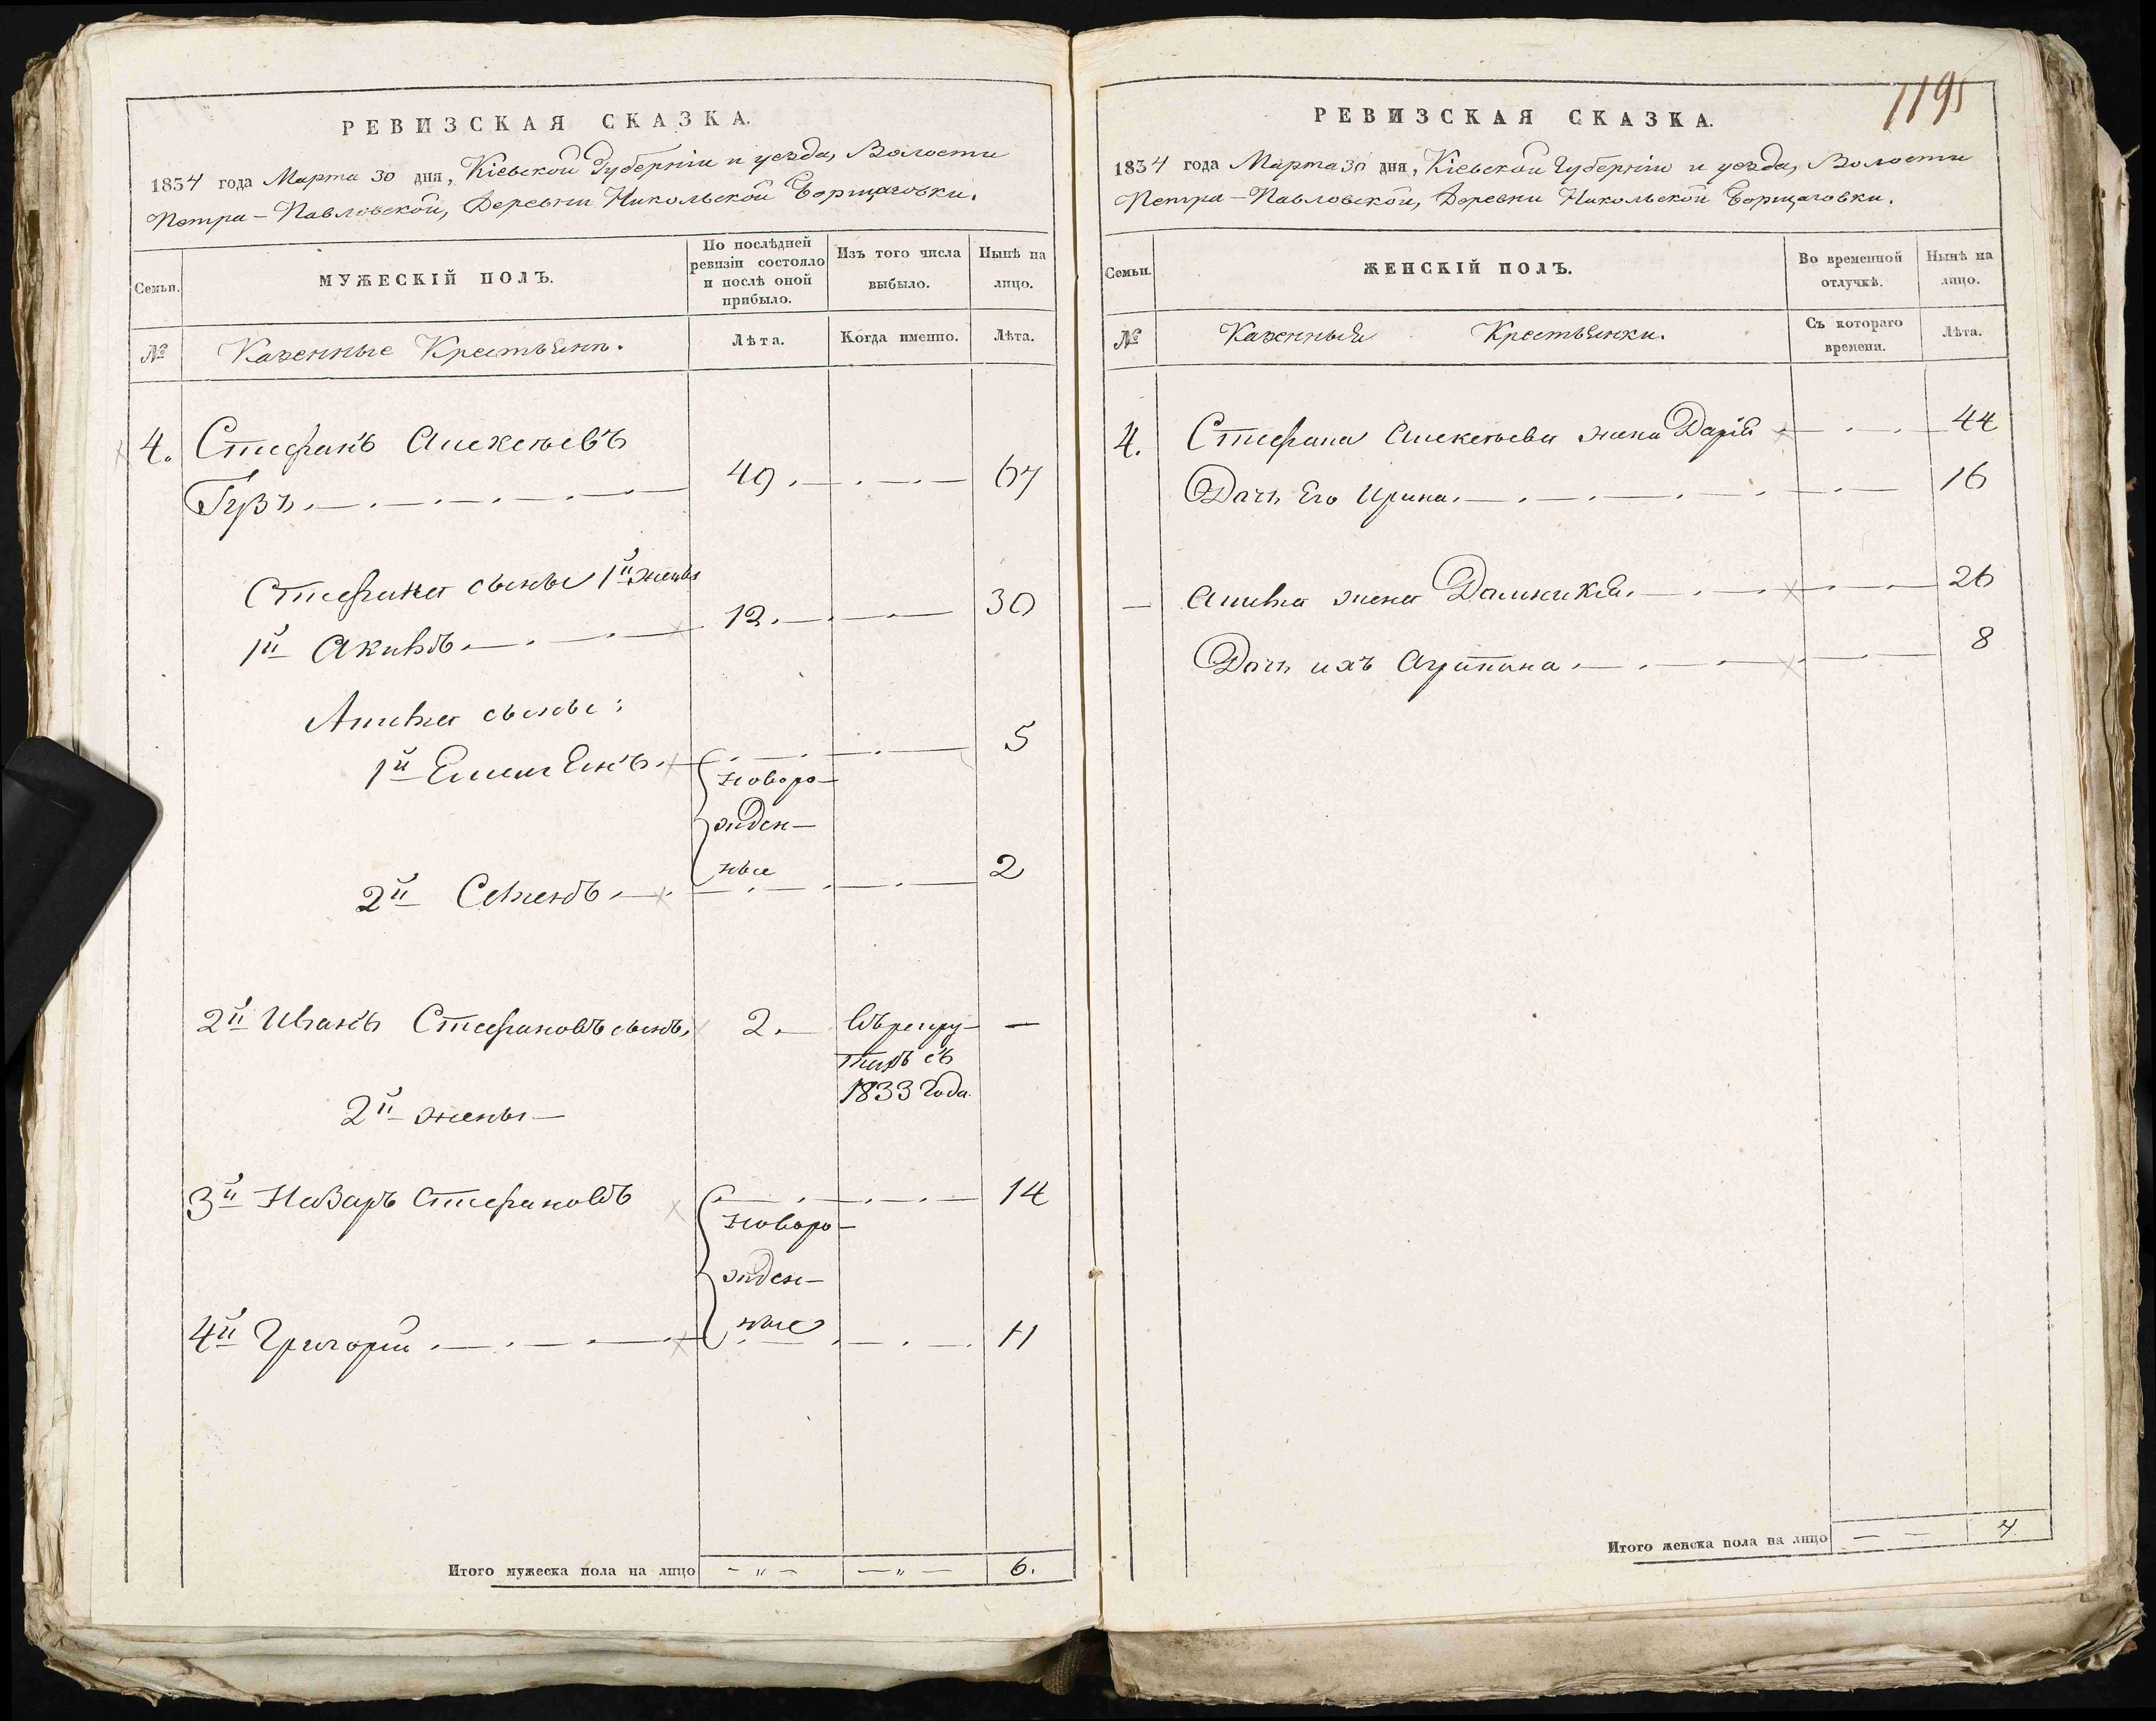 РЕВИЗСКАЯ СКАЗКА.
1834 года Марта 30 дня, Кіевской Губерніи и уезда, Волости
Петра-Павловской, Деревни Никольской Борщаговки.
Семьи.
МУЖЕСКІЙ ПОЛЪ.
По послѣдней
ревизіи состояло
и послѣ оной
прибыло.
Изъ того числа
выбыло.
Нынѣ на
лицо.
№
Казенные Крестьяне.
Лѣта.
Когда именно.
Лѣта.
4. Стефанъ Алексеевъ
Гузъ 49. 67
Стефана сыны 1й жены
1й Акимъ 12. 30
Акима сыны:
1й Емельянъ 5
новоро-
жден-
ные
2й Семенъ 2
2й Иванъ Стефановъ сынъ, 2. въ рекру- —
тахъ съ
1833 года.
2й жены
3й Назаръ Стефановъ 14
новоро-
жден-
ные
4й Григорій 11
Итого мужеска пола на лицо - „ - - „ - 6.
1195
РЕВИЗСКАЯ СКАЗКА.
1834 года Марта 30 дня, Кіевской Губерніи и уезда, Волости
Петра-Павловской, Деревни Никольской Борщаговки.
Семьи.
ЖЕНСКІЙ ПОЛЪ.
Во временной
отлучкѣ.
Нынѣ на
лицо.
№
Казенныя Крестьянки.
Съ котораго
времени.
Лѣта.
4. Стефана Алексеева жена Дарія 44
Дочь Его Ирина. 16
— Акима жена Домникія. 26
Дочь ихъ Агапина 8
Итого женска пола на лицо — — 4.